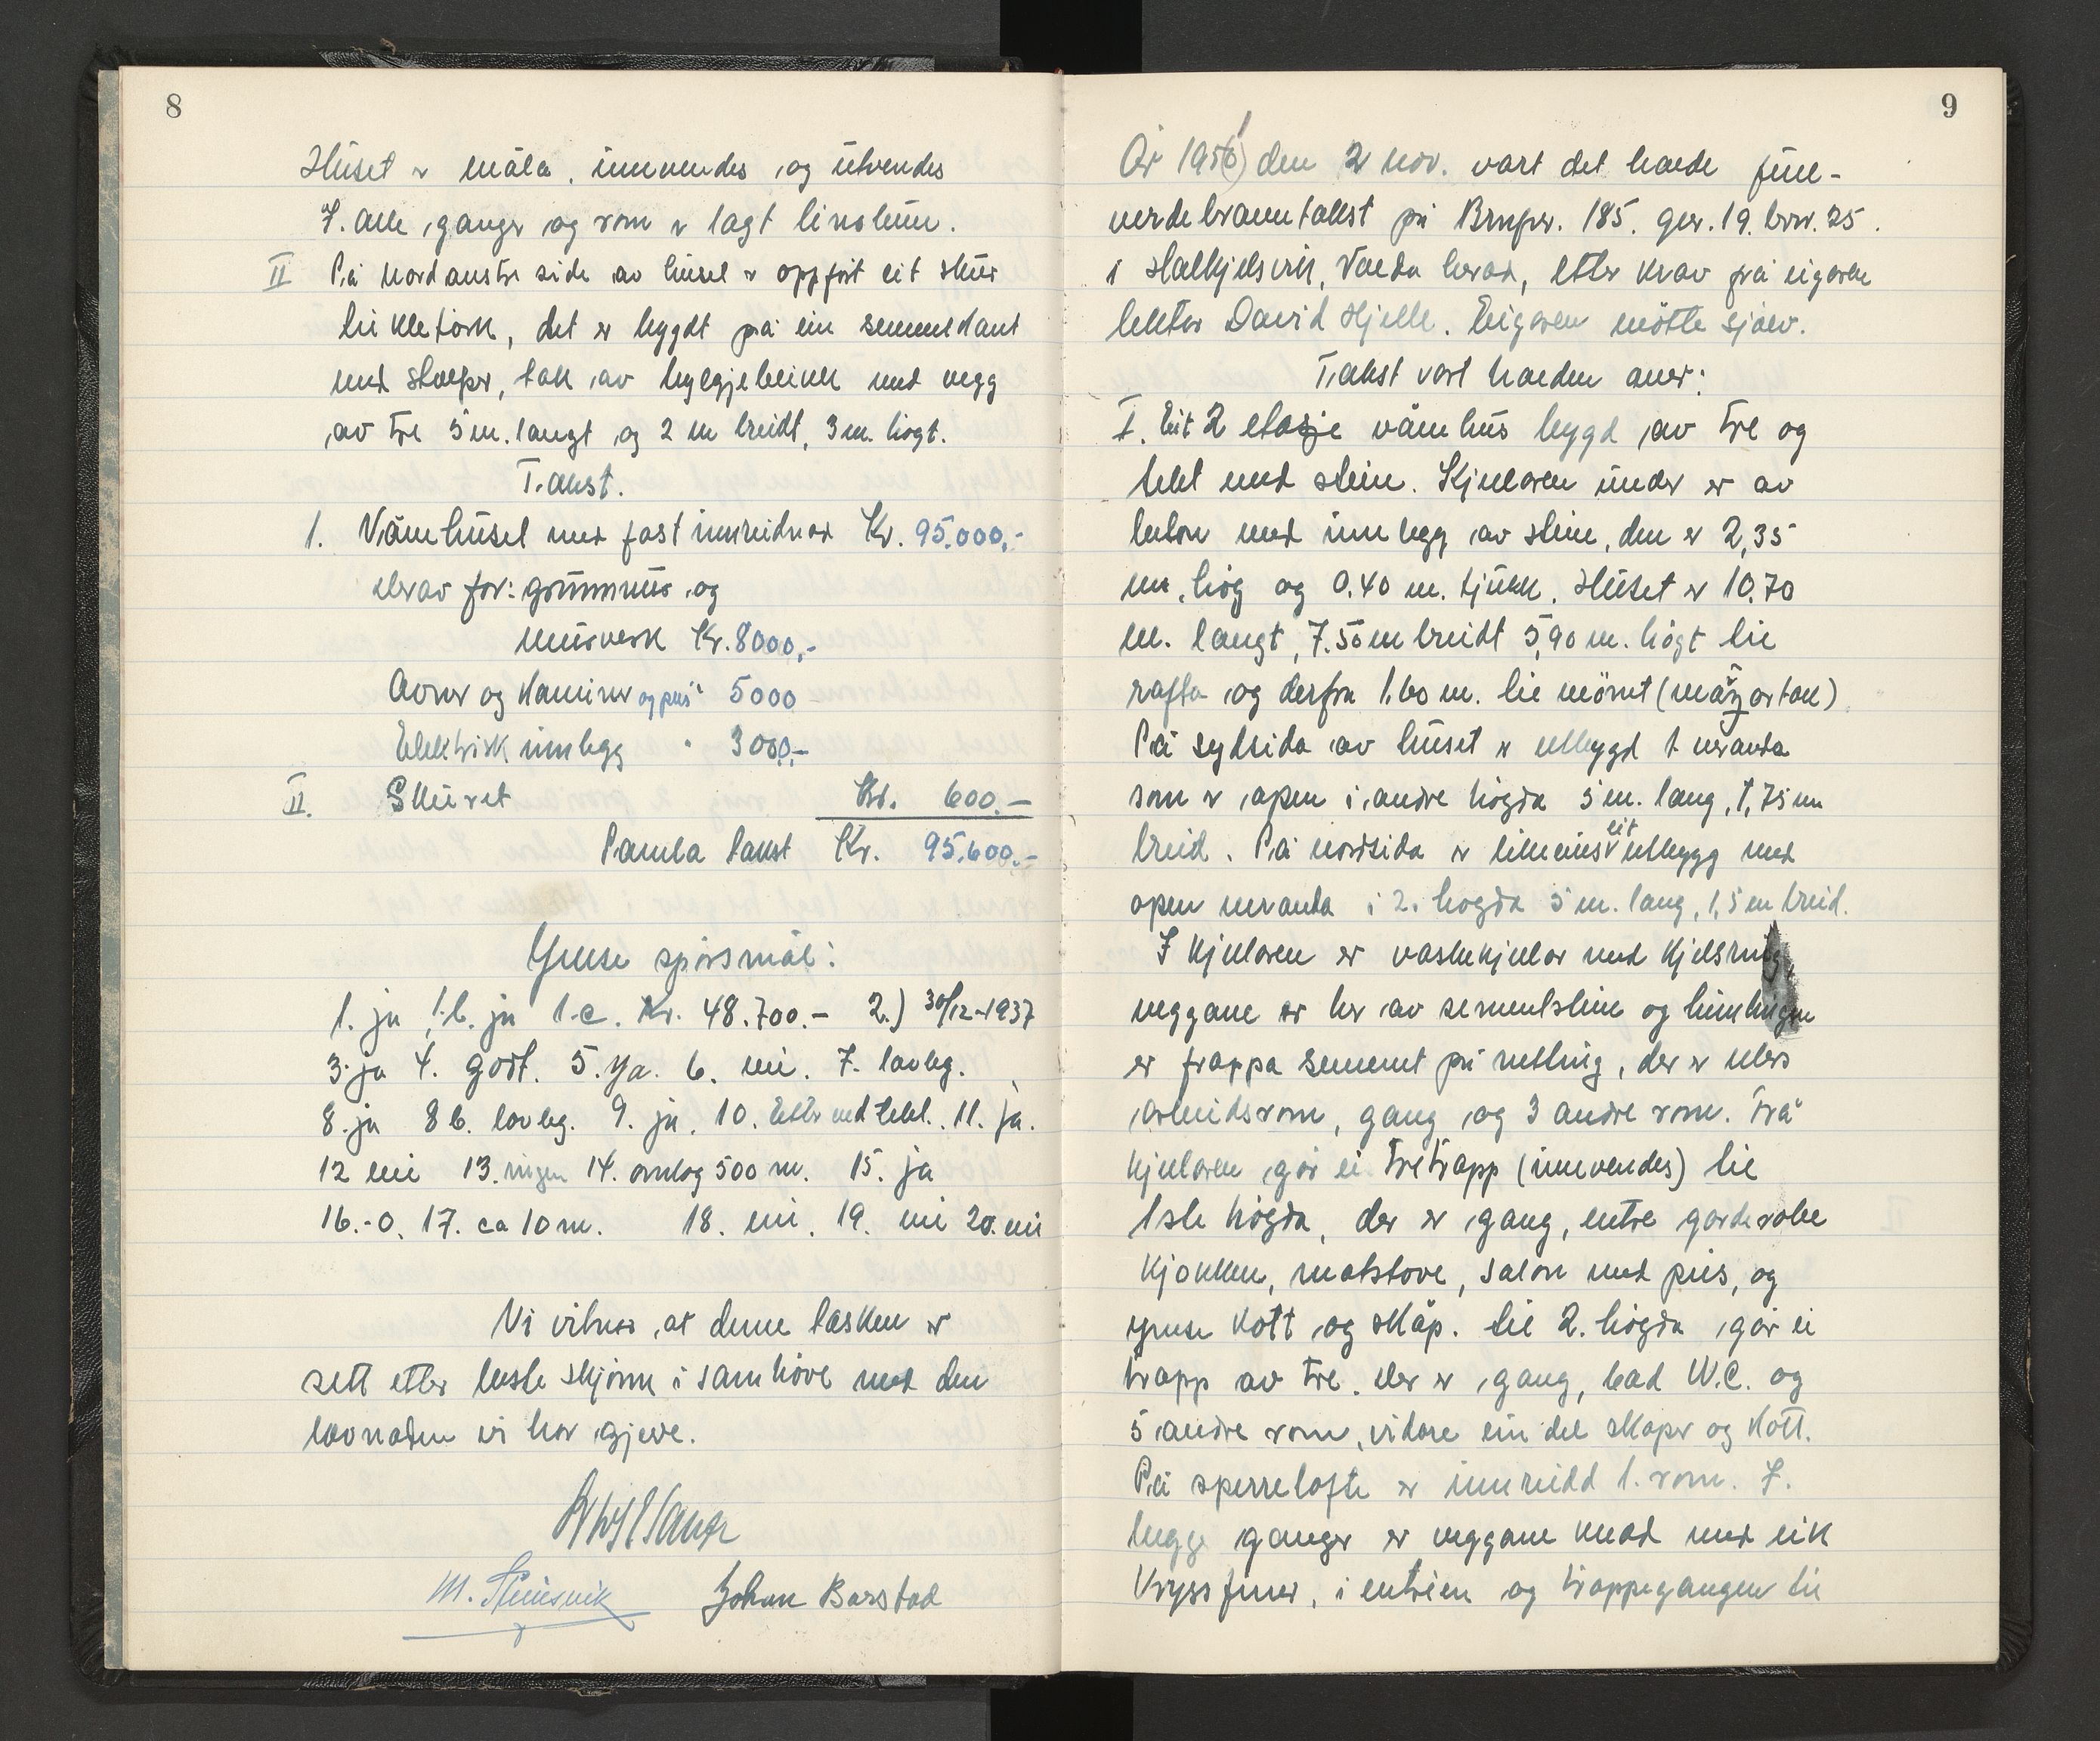 8
Huset er måla innvendes og utvendes
I alle ganger og rom er lagt linoleum.
II På nordaustre side av huset er oppført eit skur
til kletørk, det er bygdt på ein sementkant
med stolper, tak av bylgjeblikk med vegg
av tre 5 m. langt og 2 m breidt, 3 m. høgt.
Takst.
1. Våmehuset med fast innreidnad Kr. 95.000,-
derav for: grunnmur og
murverk Kr. 8000,-
Aovner og kaminer og peis " 5000
Elektrisk innlegg " 3000,-
II. Skuret Kr. 600.-
Samla takst Kr. 95.600.-
Ymse spörsmål:
1. ja 1.b. ja 1.c. Kr. 48.700.- 2.) 30/12-1937
3. ja 4. godt. 5. Ja. 6. nei. 7. lovleg.
8. ja 8 b. lovleg. 9. ja. 10. Elter ved tekt. 11. ja.
12 nei 13. ingen 14. omlag 500 m. 15. ja
16.-0. 17. ca 10 m. 18. nei. 19. nei 20. nei
Vi vitnar at denne taksten er
sett etter beste skjønn i samhöve med den
lovnaden vi har gjeve.
M. Steinsvik Johan Barstad
9
År 1956) den 2 nov. vart det halde full-
verdebranntakst på Brnpr. 185. gnr. 19. brnr. 25.
i Halkjelsvik, Volda herad, etter krav frå eigaren
lektor David Hjelle. Eigaren møtte sjølv.
Takst vart halden over:
I. Eit 2 etasje våmehus bygd av tre og
tekt med stein. Kjellaren under er av
betong med innlegg av stein, den er 2,35
m. høg og 0.40 m. tjukk. Huset er 10.70
m. langt, 7.50 m breidt 5,90 m. høgt til
rafta og derfra 1.60 m. til mönet (tak)
På sydsida av huset er utbygd 1 veranda
som er open i andre høgda 5 m. lang, 1,75 m
breid. På nordsida er eit utbygg med
open veranda i 2. høgda 5 m. lang, 1,5 m breid.
I kjellaren er vaskekjellar med kjelering
veggane er her av sementstein og himlingen
er frappa sement på netting, der er elles
arbeidsrom, gang og 3 andre rom. Frå
kjellaren går ei tretrapp (innvendes) til
1ste høgda, der er gang, entre garderobe
kjøkken, matstove, salon med peis, og
ymse kott og skåp. til 2. høgda går ei
trapp av tre. der er gang, bad W.C. og
5 andre rom, vidare ein del skaper og kott.
På sperreloftet er innreidd 1. rom. I
begge ganger er veggane kledd med eik
kryssfiner, i entrien og trappegangen til